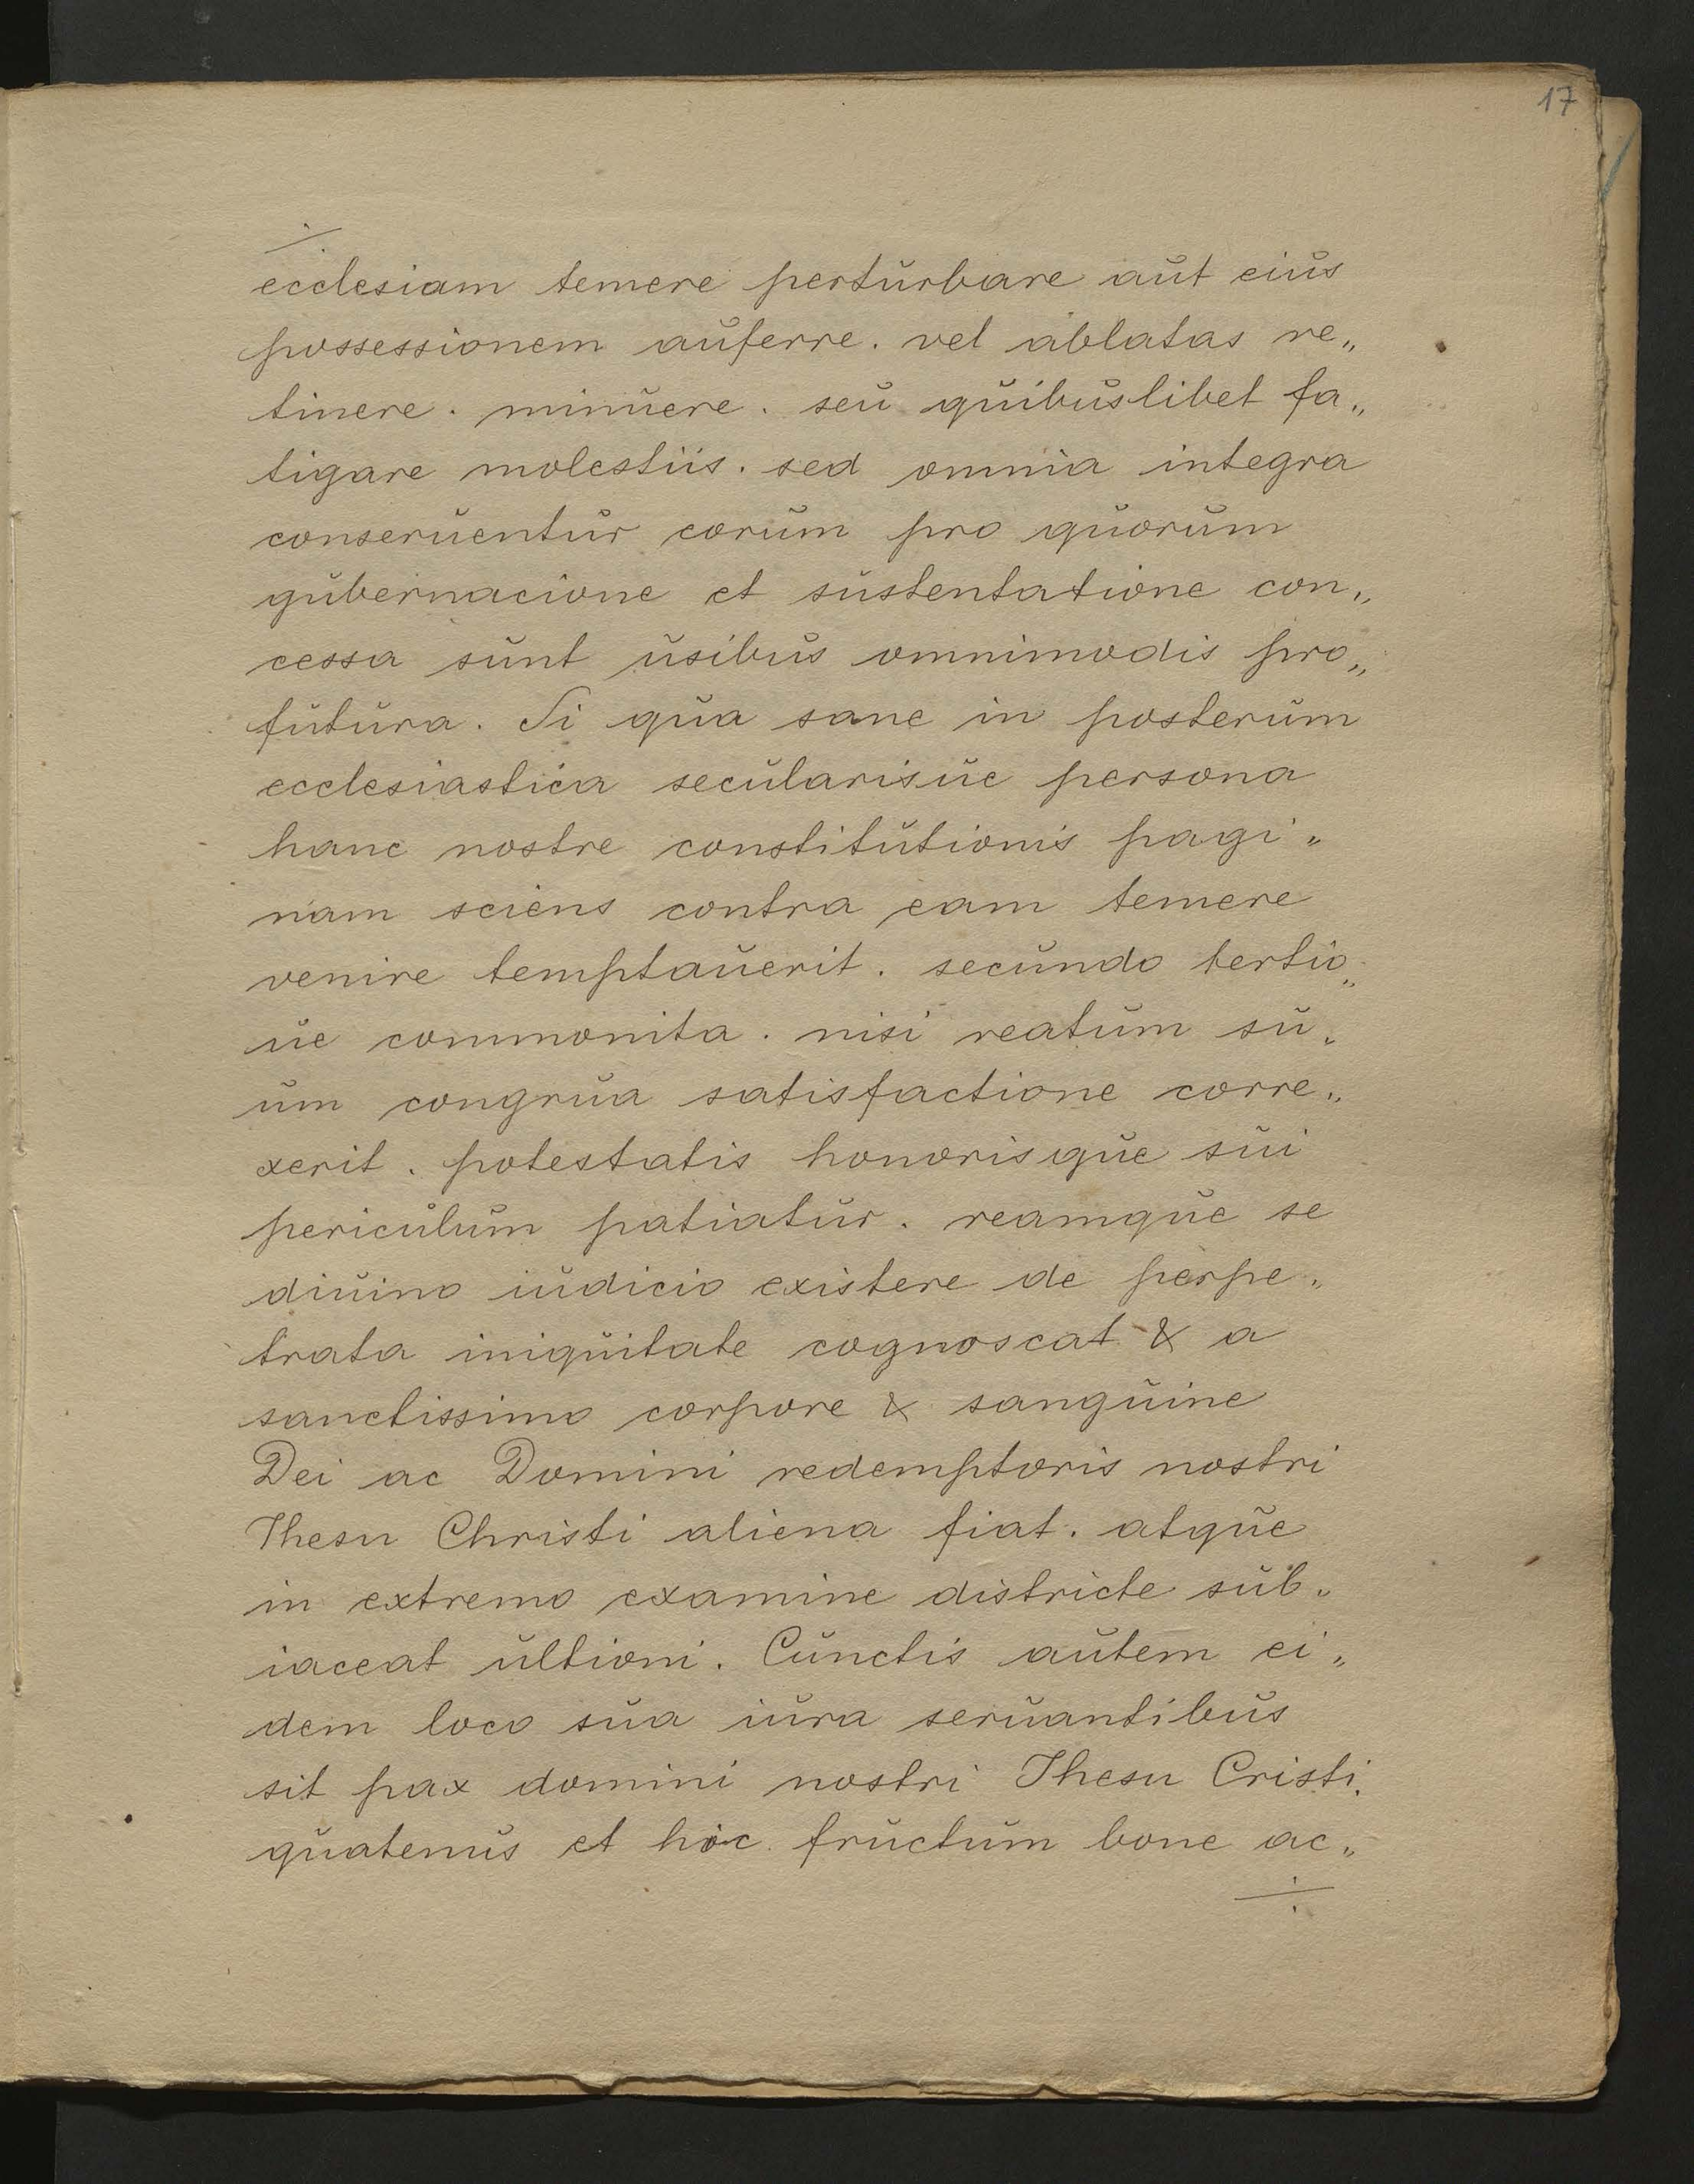 17
÷
ecclesiam temere perturbare aut eius
possessionem auferre. vel ablatas re„
tinere. minuere. seu quibuslibet fa„
tigare molestiis. sed omnia integra
conseruentur eorum pro quorum
gubernacione et sustentatione con„
cessa sunt usibus omnimodis pro„
futura. Si qua sane in posterum
ecclesiastica secularisue persona
hanc nostre constitutionis pagi„
nam sciens contra eam temere
venire temptauerit. secundo tertio„
ue commonita. nisi reatum su„
um congrua satisfactione corre„
xerit. potestatis honorisque sui
periculum patiatur. reamque se
diuino iudicio existere de perpe„
trata iniquitate cognoscat & a
sanctissimo corpore & sanguine
Dei ac Domini redemptoris nostri
Ihesu Christi aliena fiat. atque
in extremo examine districte sub„
iaceat ultioni. Cunctis autem ei„
dem loco sua iura seruantibus
sit pax domini nostri Ihesu Cristi.
quatenus et hic fructum bone ac„
÷